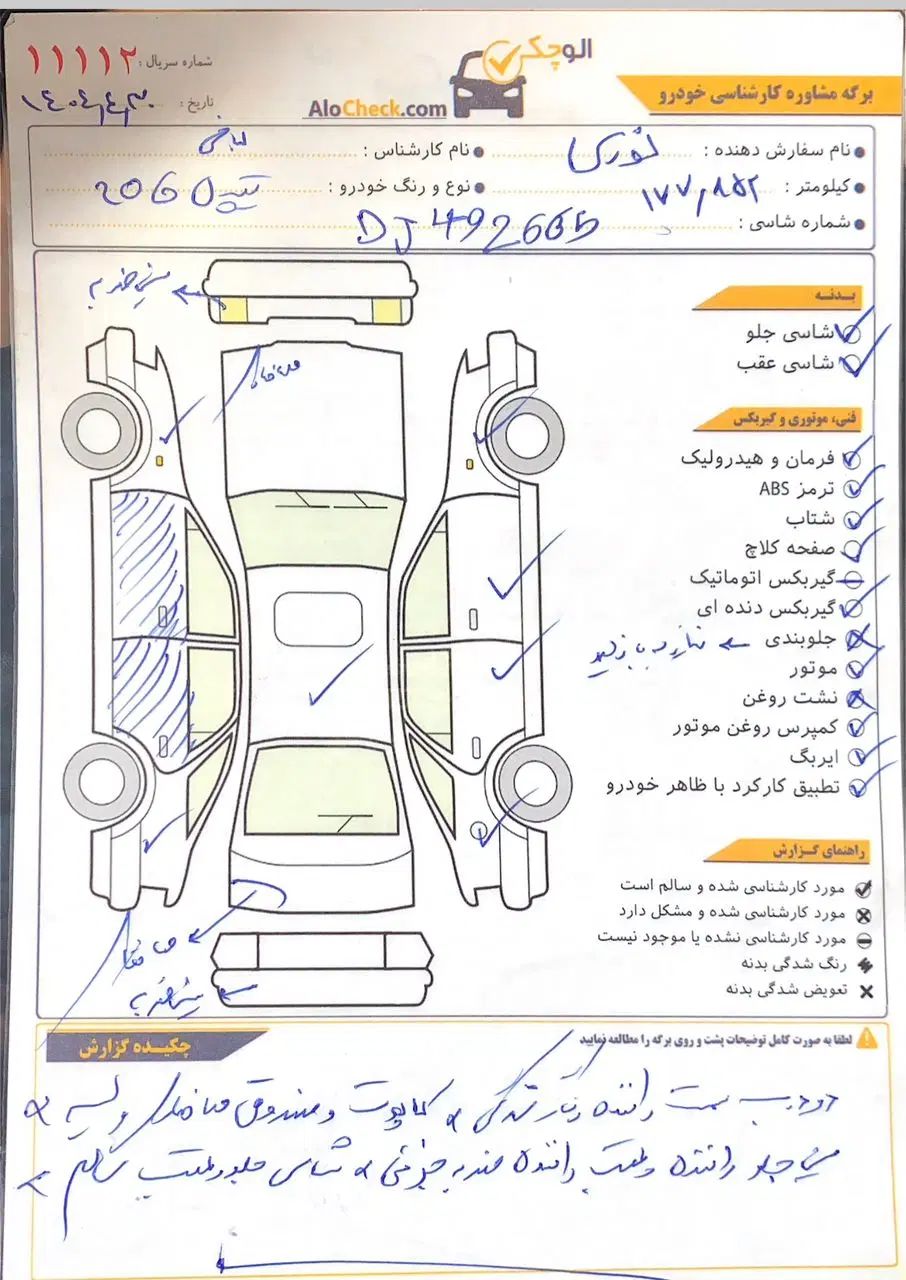 شماره سریال : ۱۱۱۱۲
تاریخ :
الوچک
AloCheck.com
برگه مشاوره کارشناسی خودرو
نام سفارش دهنده :
نام کارشناس :
کیلومتر : ۱۷۷,۸۵۲
نوع و رنگ خودرو : 206
شماره شاسی :
ضربه
بدنه
شاسی جلو
شاسی عقب
فنی، موتوری و گیربکس
فرمان و هیدرولیک
ترمز ABS
شتاب
صفحه کلاچ
گیربکس اتوماتیک
گیربکس دنده ای
جلوبندی
موتور
نشت روغن
کمپرس روغن موتور
ایربگ
تطبیق کارکرد با ظاهر خودرو
راهنمای گزارش
مورد کارشناسی شده و سالم است
مورد کارشناسی شده و مشکل دارد
مورد کارشناسی نشده یا موجود نیست
رنگ شدگی بدنه
تعویض شدگی بدنه
لطفا به صورت کامل توضیحات پشت و روی برگه را مطالعه نمایید
چکیده گزارش
دو درب سمت راننده رنگ شدگی کاپوت و صندوق
جلو راننده و عقب راننده ضربه جزئی شاسی جلو و عقب سالم